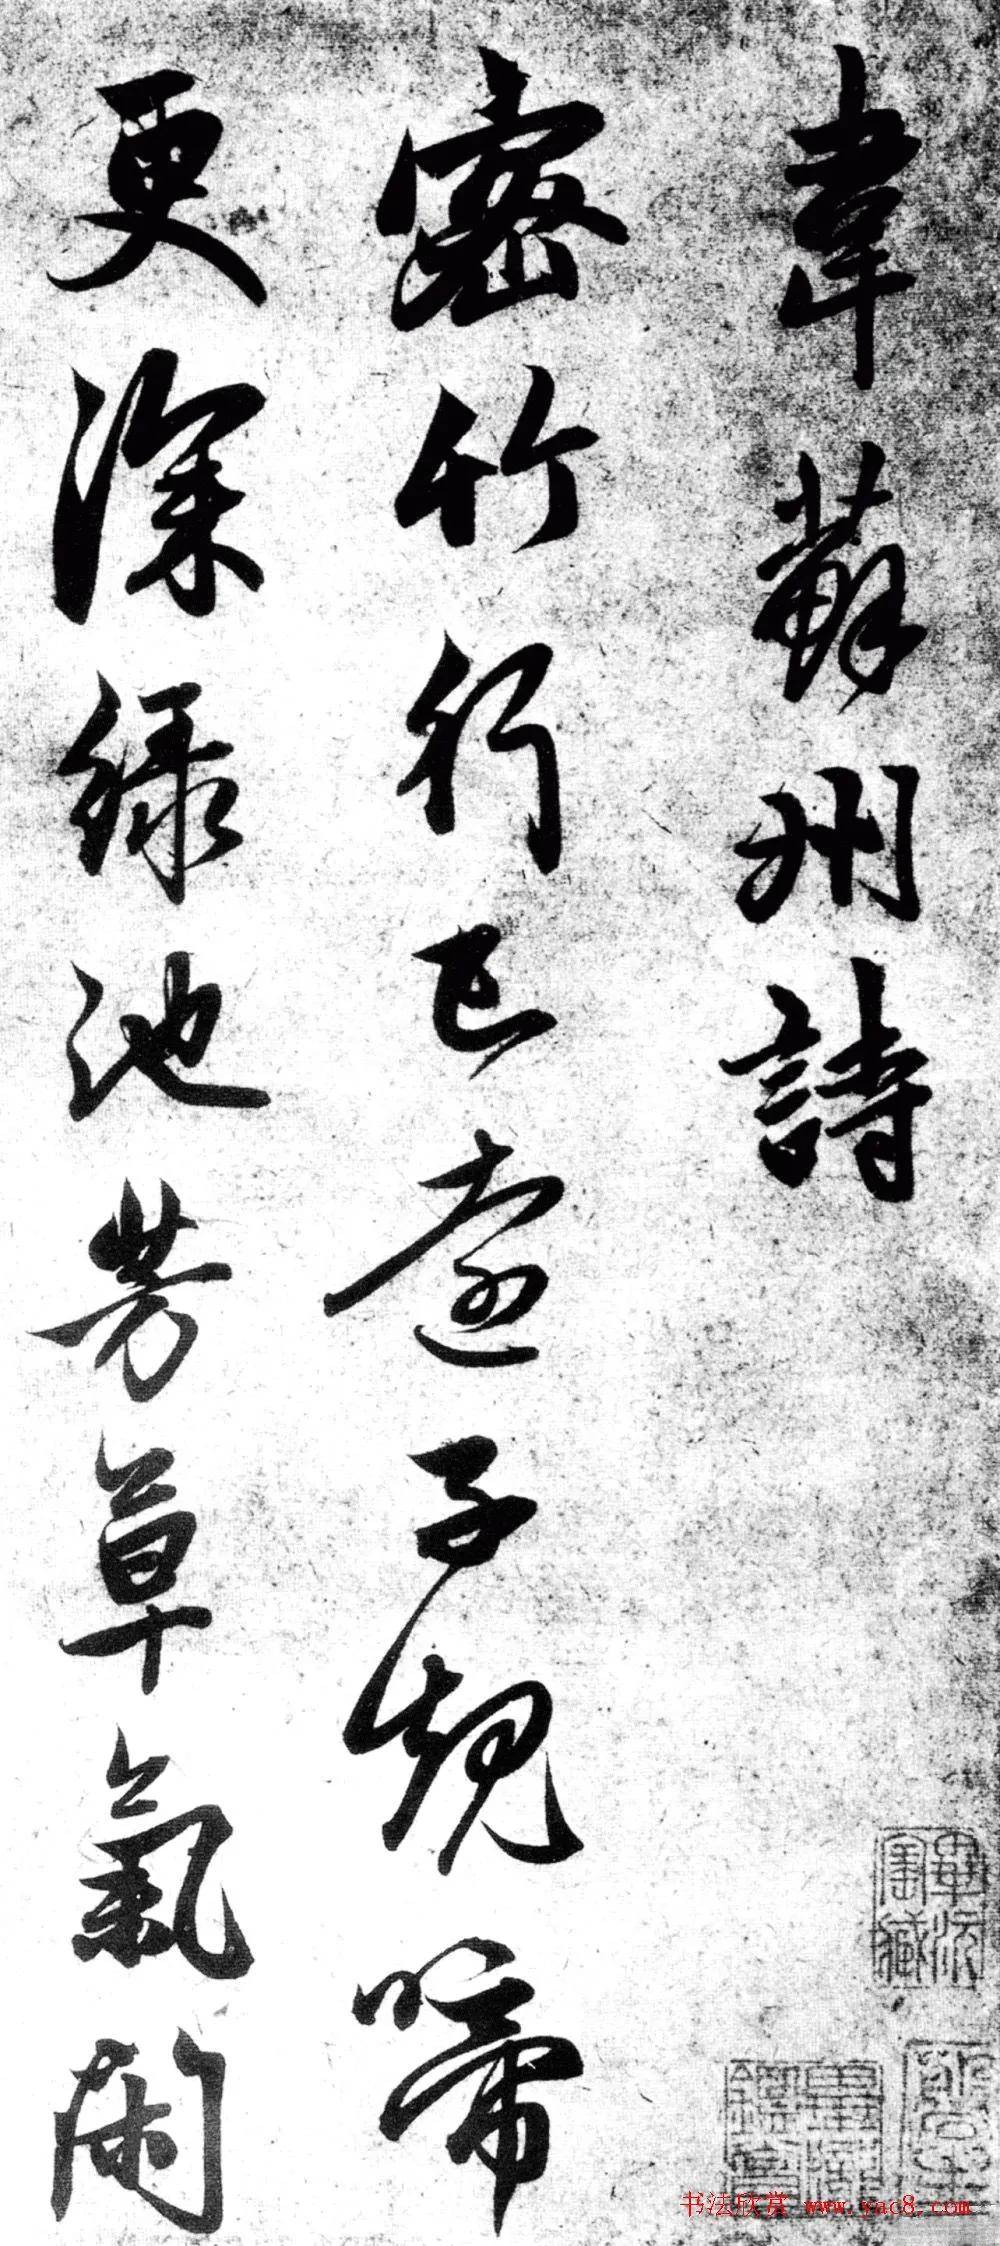 韋蘇州詩
密竹行已遠子規啼
更深綠池芳草氣閑
書法欣赏 www.yac8.com